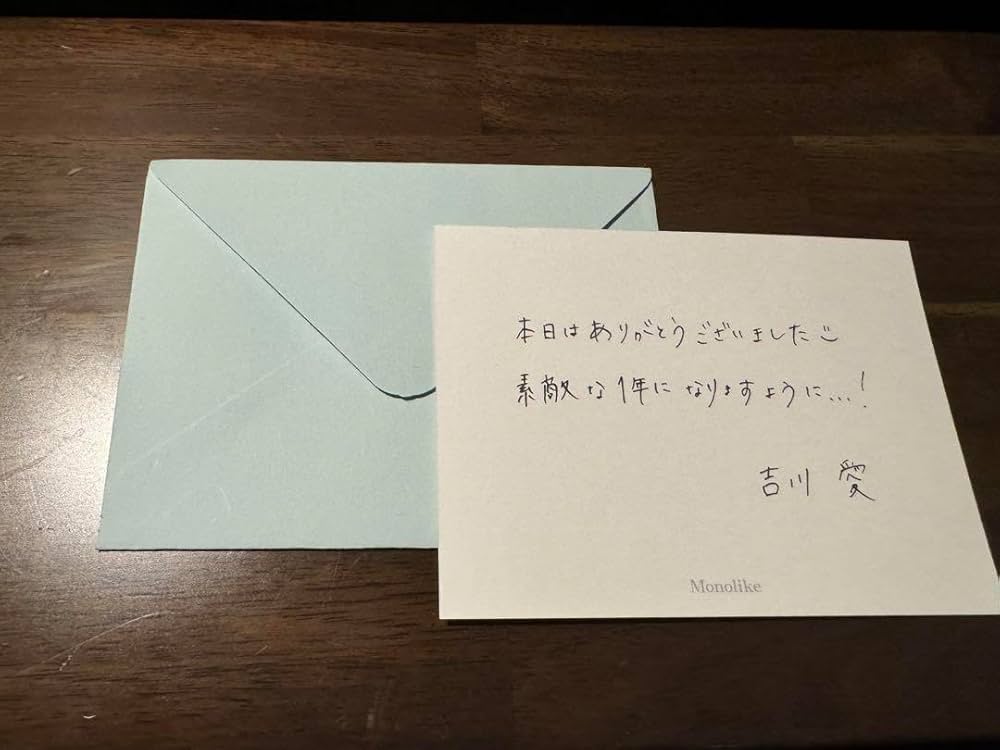 本日はありがとうございました
素敵な1年になりますように...!
吉川 愛
Monolike